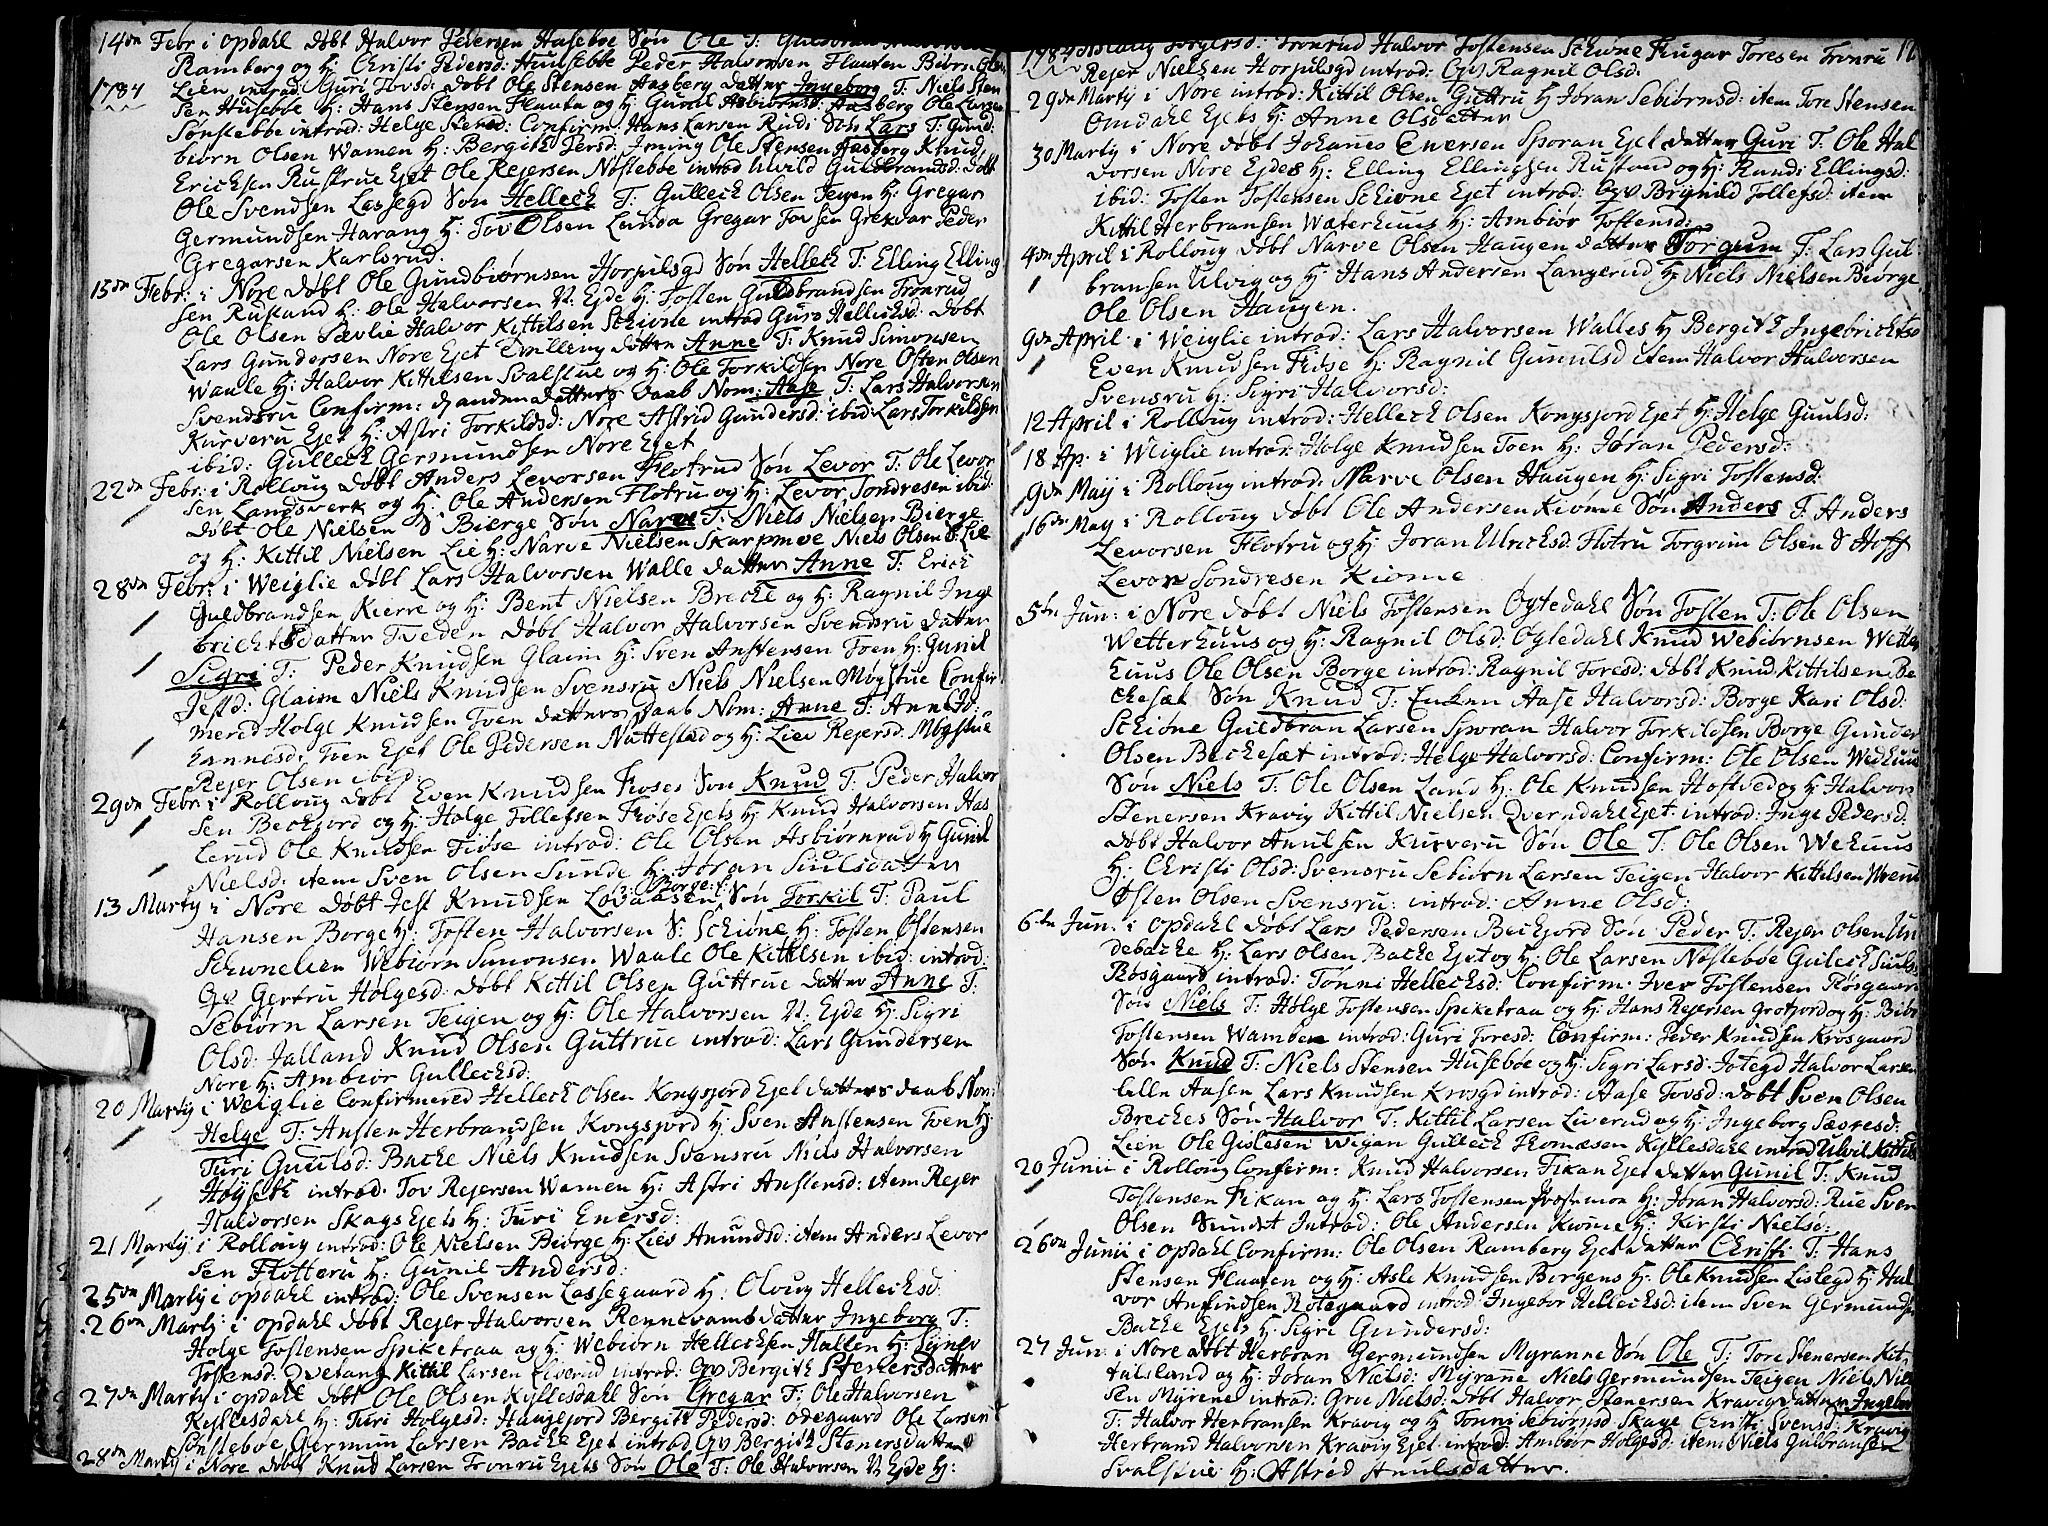 14de Febr i Opdahl døbt Halvor Pedersen Huseboe Søn Ole T:
Ramberg og H: Christi Pedersd: Huusebøe Peder Halvorsen Flaaten Biørn
1784
Lien introd: Guri Tovsd: døbt Ole Stensen Aasberg datter Ingeborg T: Niels Sten
sen Husebøe H: Hans Stensen Flaata og H: Gunil Asbiørnsd: Aasberg Ole Larsen
Sønstebøe introd: Helge Stensd: Confirm: Hans Larsen Rudi Søn Lars T: Gund
biørn Olsen Wamen H: Bergith Persd: Iming Ole Stensen Aasberg Knud
Ericksen Rustrue Ejet Ole Rejersen Nøstebøe introd Ulvild Guldbrandsd: døbt
Ole Svendsen Lassegd Søn Helleck T: Gulleck Olsen H: Gregar
Germundsen Harang H: Tov Olsen Lunda Gregar Tovsen Grekvar Peder
Gregarsen Karlsrud.
15de Febr: i Nore døbt Ole Gundbiørnsen Horpulsgd Søn Helleck T: Elling Elling
sen Rustand H: Ole Halvorsen N: Ejde H: Tosten Guldbrandsen Tronrud
Ole Olsen Sevlie Halvor Kittilsen Schiøne introd Guro Hellichsd: døbt
Lars Gundersen Nore Ejet Tvilling datter Anne T: Knud Simonsen
Waale H: Halvor Kittilsen Svalstue og H: Ole Torkildsen Nore Østen Olsen
Svendsru Confirm: dj anden datters daab Nom: Aase T: Lars Halvorsen
Kurveru Ejet H: Astri Torkildsd: Nore Astrid Gundersd: ibid: Lars Torkildsen
ibid: Gulleck Germundsen Nore Ejet
22de Febr: i Rolloug døbt Anders Levorsen Flotrud Søn Levor T: Ole Levor
sen Landswerk og H: Ole Andersen Flotru og H: Levor Sondresen ibid:
døbt Ole Nielsen S: Bierge Søn Narve T: Niels Nielsen Bierge
og H: Kittil Nielsen Lie H: Narve Nielsen Skarpmoe Niels Olsen S: Lie
28de Febr: i Weiglie døbt Lars Halvorsen Walle datter Anne T: Erich
Guldbrandsen Kierre og H: Bent Nielsen Brecke og H: Ragnil Inge
brichtsdatter Tveden døbt Halvor Halvorsen Svendsru datter
Sigri T: Peder Knudsen Glaim H: Sven Anstensen Toen H: Gunil
Jestd: Glaim Niels Knudsen Svensru Niels Nielsen Møgstue Confir
mered Holge Knudsen Toen datters daab Nom: Anne T: Anne Jo:
hannesd: Toen Ejet Ole Pedersen Nattestad og H: Liev Rejersd: Møgstue
Rejer Olsen ibid:
29de Febr i Rolloug døbt Even Knudsen Fioses Søn Knud T: Peder Halvor
sen Beckjord og H: Holge Tollefsen Fiøse Ejets H: Knud Halvorsen Has
lerud Ole Knudsen Fiøse introd: Ole Olsen Asbiørnrud H: Gunil
Nielsd: item Sven Olsen Sunde H: Jøran Siulsdatter
13 Martj i Nore døbt Jest Knudsen Lovaasen :/: Borge :/: Søn Torkil T: Paul
Hansen Borge H: Tosten Halvorsen S: Schiøne H: Tosten Østensen
Schiønelien Webiørn Simonsen Waale Ole Kittilsen ibid: introd:
Qv Gertru Holgesd: døbt Kittil Olsen Guttrue datter Anne T:
Sebiørn Larsen Teigen og H: Ole Halvorsen N: Ejde H: Sigri
Olsd: Jalland Knud Olsen Guttrue introd: Lars Gundersen
Nore H: Ambiør Gullecksd:
20 Martj i Weiglie Confirmered Helleck Olsen Kongsjord Ejet datters daab Nom:
Helge T: Ansten Herbrandsen Kongsjord H: Sven Anstensen Toen H:
Turi Guulsd: Backe Niels Knudsen Svensru Niels Halvorsen
Høyseth introd. Tov Rejersen Wamen H: Astri Anstensd: item Rejer
Halvorsen Skags Ejets H: Turi Enersd:
21 Martij i Rolloug introd: Ole Nielsen Biørge H: Liev Anundsd: item Anders Levor
sen Flotteru H: Gunil Andersd:
25de Martij i Opdahl introd: Ole Svensen Lassegaard H: Oloug Hellecksd
26de Martj i Opdahl døbt Rejer Halvorsen Rennevamb datter Ingeborg T:
Holge Tostensen Spiketraa og H: Webiørn Hellecksen Hallen H: Synev
Tostensd: Qvetang Kittil Larsen Liverud introd: Qv Bergith Stenersdatter
27de Martj i Opdahl døbt Ole Olsen Kyllesdahl Søn Gregar T: Ole Halvorsen
Kyllesdahl H: Turi Holgesd: Haugejord Bergith Pedersd: Ødegaard Ole Larsen
Sønstebøe Germun Larsen Backe Ejet introd Qv Bergith Stenersdatter
28de Martj i Nore døbt Knud Larsen Tronru Ejets Søn Ole T: Ole Halvorsen N: Ejde H:
1784 Aslaug Torgersd: Tronrud Halvor Tostensen Schiøne Trugar Toresen Tronru 17
Rejer Nielsen Horpulsgd introd: Qv Ragnil Olsd.
29de Martij i Nore introd: Kittil Olsen Guttru H: Jøran Sebiørnsd: item Tore Stensen
Omdahl Ejets H: Anne Olsdatter
30 Martij i Nore døbt Johannes Enersen Sporan Ejet datter Guri T: Ole Hal
vorsen Nore Ejdes H: Elling Ellingsen Rustand og H: Randi Ellingsd:
ibid: Tosten Tostensen Schiøne Ejet introd: Qv Brynild Tollefsd: item
Kittil Herbransen Wæterhuus H: Ambiør Tostensd:
4de April i Rolloug døbt Narve Olsen Haugen datter Torgun T: Lars Gul
bransen Ulvig og H: Hans Andersen Langerud H: Niels Nielsen Biørge
Ole Olsen Haugen.
9de April i Weiglie introd: Lars Halvorsen Walles H: Bergith Ingebrichtsd
Even Knudsen Fiøse H: Ragnil Gunulsd item Halvor Halvorsen
Svensru H: Sigri Halvorsd:
12 April i Rolloug introd: Helleck Olsen Kongsjord Ejet H: Helge Guulsd:
18 Ap: i Weiglie introd: Holge Knudsen Toen H: Jøran Pedersd:
9de Maij i Rolloug introd: Narve Olsen Haugen H: Sigri Tostensd:
16de May i Rolloug døbt Ole Andersen Kiøme Søn Anders T: Anders
Levorsen Flotru og H: Joran Ulrichsd: Flotru Torgrim Olsen S: Hoff
Levor Sondresen Kiøme
5te Jun: i Nore døbt Niels Tostensen Øytedahl Søn Tosten T: Ole Olsen
Wetterhuus og H: Ragnil Olsd: Øytedahl Knud Webiørnsen Wetter
huus Ole Olsen Borge introd: Ragnil Toresd: døbt Knud Kittilsen Be
ckesæt Søn Knud T: Enken Aase Halvorsd: Borge Kari Olsd:
Schiøne Guldbran Larsen Sporan Halvor Torkildsen Borge Gunder
Olsen Beckesæt introd: Helge Halvorsd: Confirm: Ole Olsen Wedhuus
Søn Niels T: Ole Olsen Land H: Ole Knudsen Høftved og H: Halvor
Stenersen Kravig Kittil Nielsen Qverndahl Ejet introd: Inge Pedersd.
døbt Halvor Anulsen Kurveru Søn Ole T: Ole Olsen Wehuus
H: Christi Olsd: Svensru Sebiørn Larsen Teigen Halvor Kittilsen
Østen Olsen Svensru: introd: Anne Olsd:
6te Jun: i Opdahl døbt Lars Pedersen Beckjord Søn Peder T. Rejer Olsen Un
debacke H: Lars Olsen Backe Ejet og H: Ole Larsen Nøstebøe Guleck Siuls
Røsgaard introd: Tønni Hellecksd: Confirm. Iver Tostensen Røsgaard
Søn Niels T. Holge Tostensen Spiketraa og H: Hans Rejersen Grotjord og H: Bibi
Tostensen Wamben introd: Guri Toresd: Confirm: Peder Knudsen Krosgaard
Søn Knud T: Niels Stensen Husebøe og H: Sigri Larsd: Jotegd Halvor Larsen
Lille Aasen Lars Knudsen Krosgd introd: Aase Tovsd: døbt Sven Olsen
Breckes Søn Halvor T. Kittil Larsen Liverud og H: Ingeborg Sævresd:
Lien Ole Gislesen Wigan Gulleck Thomæsen Kyllesdahl introd Ulvil Kittils
20 Junii i Rolloug Confirm: Knud Halvorsen Fikan Ejet datter Gunil T: Knud
Tostensen Fikan og H: Lars Tostensen Frosemoe H: Jøran Halvorsd: Rue Sven
Olsen Sundet Introd: Ole Andersen Kiøme H: Kirsti Nielsd:
26de Junii i Opdahl Confirm: Ole Olsen Ramberg Ejet datter Christi T: Hans
Stensen Flaaten og H: Asle Knudsen Borgens H: Ole Knudsen Lislegd H: Hal
vor Anfindsen Rotegaard introd: Ingebor Hellecksd: item Sven Germundsen
Backe Ejets H: Sigri Gundersd:
27 Jun: i Nore døbt Herbran Germundsen Myranne Søn Ole T: Tore Stenersen Kit
tilsland og H: Joran Nielsd: Myrane Niels Germundsen Teigen Niels Niel
sen Myrene introd: Groe Nielsd: døbt Halvor Stenersen Kravig datter Ingebor
T: Halvor Herbransen Kravig og H: Tonni Sebiørnsd Skage Christi Svensd: Kravig
Herbrand Halvorsen Kravig Ejet introd: Ambiør Holgesd: item Niels Gulbransen
Svalstue H: Astred Anulsdatter.